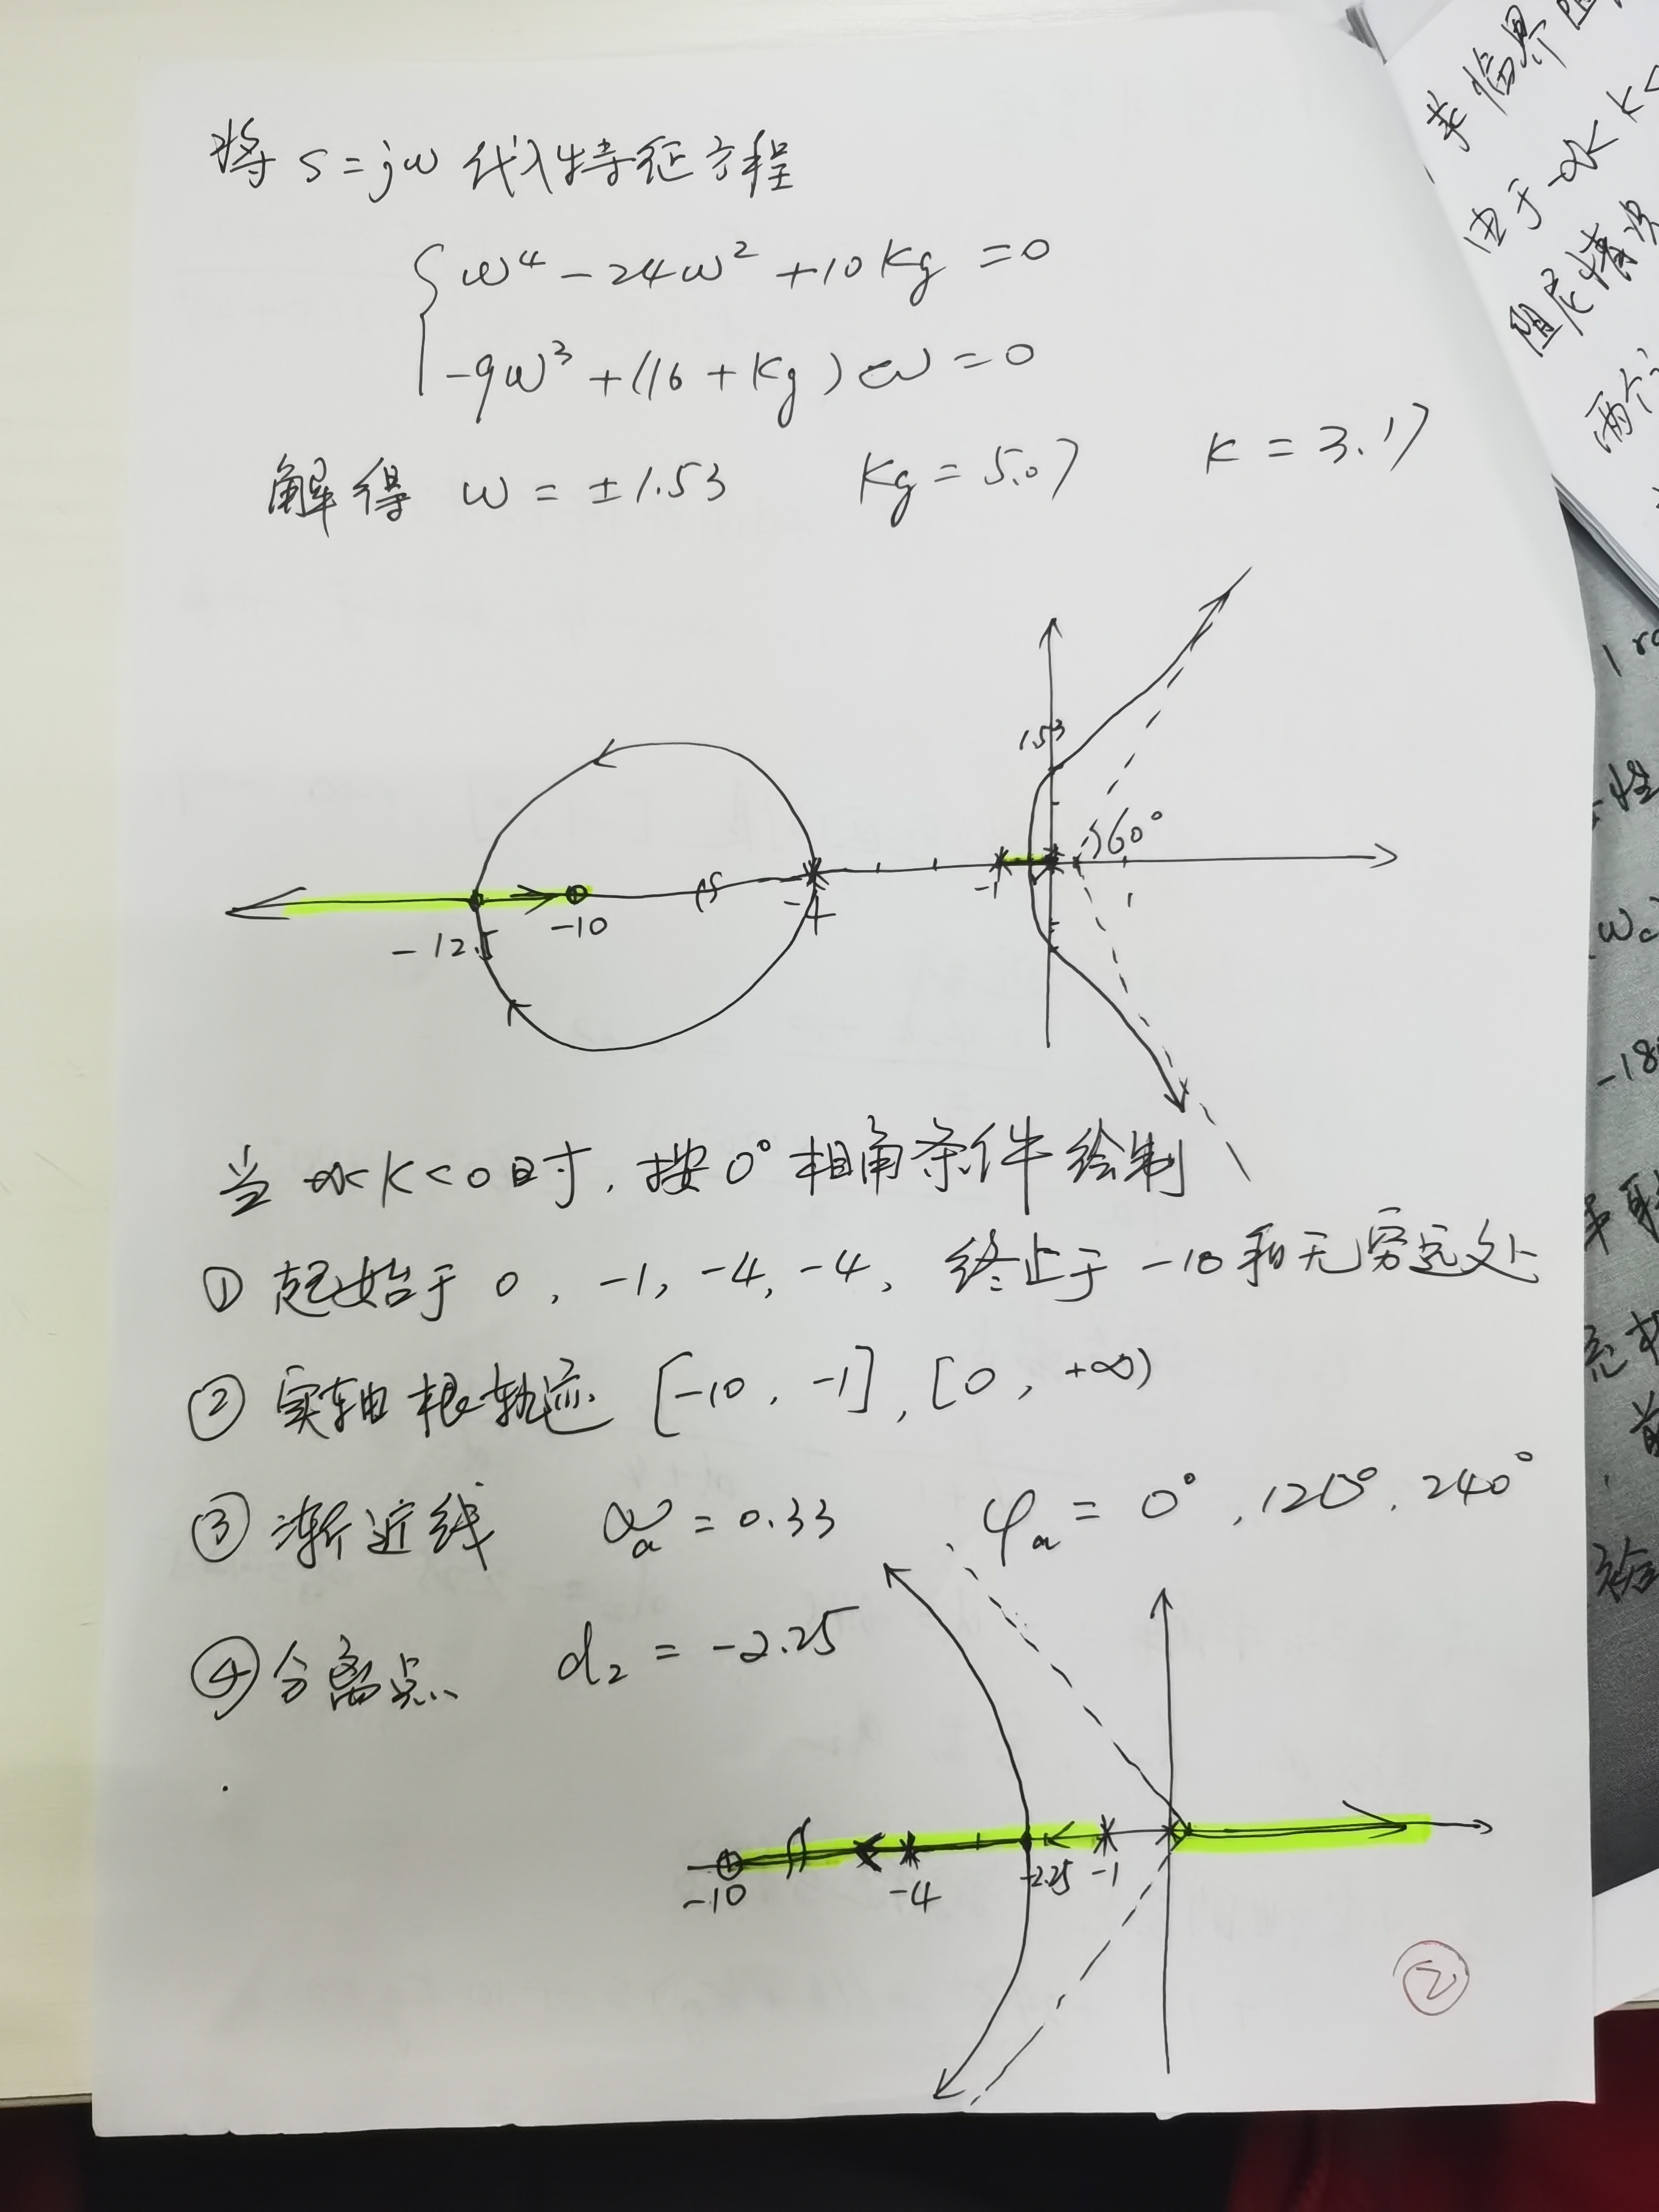 将 s=jω 代入特征方程
ω⁴-24ω²+10Kg=0
-9ω³+(16+Kg)ω=0
解得 ω=±1.53 Kg=5.07 K=3.17
1.53
60°
-1
-4
-10
-12.5
1
当 -∞<K<0时,按0°相角条件绘制
① 起始于 0, -1, -4, -4, 终止于 -10 和无穷远处
② 实轴根轨迹 [-10, -1], [0, +∞)
③ 渐近线 σa=0.33, φa=0°, 120°, 240°
④ 分离点 d₂=-2.25
-10 -4 -2.25 -1
②
率临界阻
由于-∞<K<
阻尼情况
两个
-18